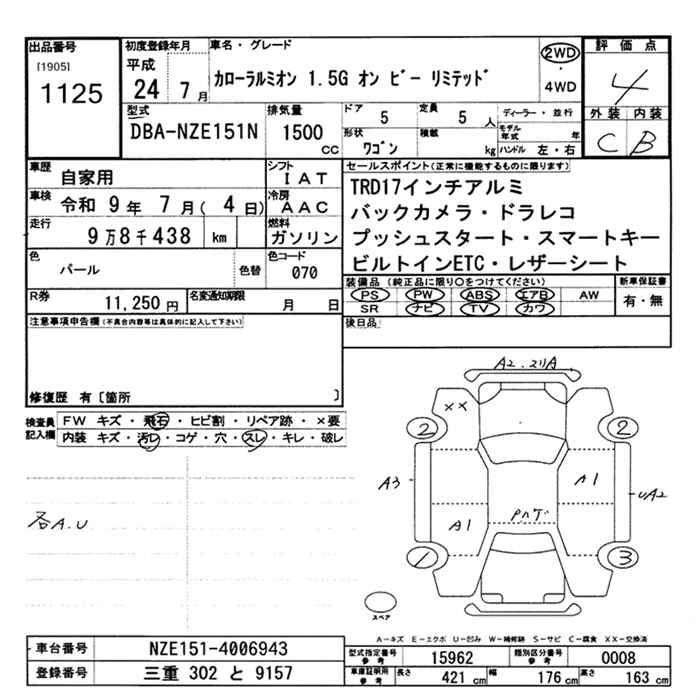 出品番号 初度登録年月 車名・グレード 評価点
[1905] 1125 平成 24 7月 カローラルミオン 1.5G オン ビー リミテッド 2WD・4WD 4
外装 内装
C B
型式 DBA-NZE151N 排気量 1500 CC ドア 5 定員 5 人 ディーラー・並行
形状 ワゴン 積載 kg モデル年式 年 ハンドル 左・右
車歴 自家用 シフト IAT セールスポイント(正常に機能するものに限ります)
車検 令和 9年 7月( 4日) 冷房 AAC
TRD17インチアルミ
バックカメラ・ドラレコ
走行 9万8千438 km 燃料 ガソリン
プッシュスタート・スマートキー
ビルトインETC・レザーシート
色 パール 色替 色コード 070
装備品(純正品に限り○をつけてください) 新車保証書
PS PW ABS エアB AW 有・無
SR ナビ TV カワ
R券 11,250円 名変通知期限 月 日
注意事項申告欄(不具合内容等は具体的に記入して下さい) 後日品
修復歴 有〔箇所 〕
検査員記入欄 FW キズ・飛石・ヒビ割・リペア跡・×要
内装 キズ・汚レ・コゲ・穴・スレ・キレ・破レ
各A.U
A2.スリA
XX
2 2
A3 A1 UA2
A1
1 3
スペア
A-キズ E-エクボ U-凹み W-補修跡 S-サビ C-腐食 XX-交換済
車台番号 NZE151-4006943
登録番号 三重 302 と 9157
型式指定番号 参考 15962 類別区分番号 参考 0008
車庫証明用 参考 長さ 421 cm 幅 176 cm 高さ 163 cm